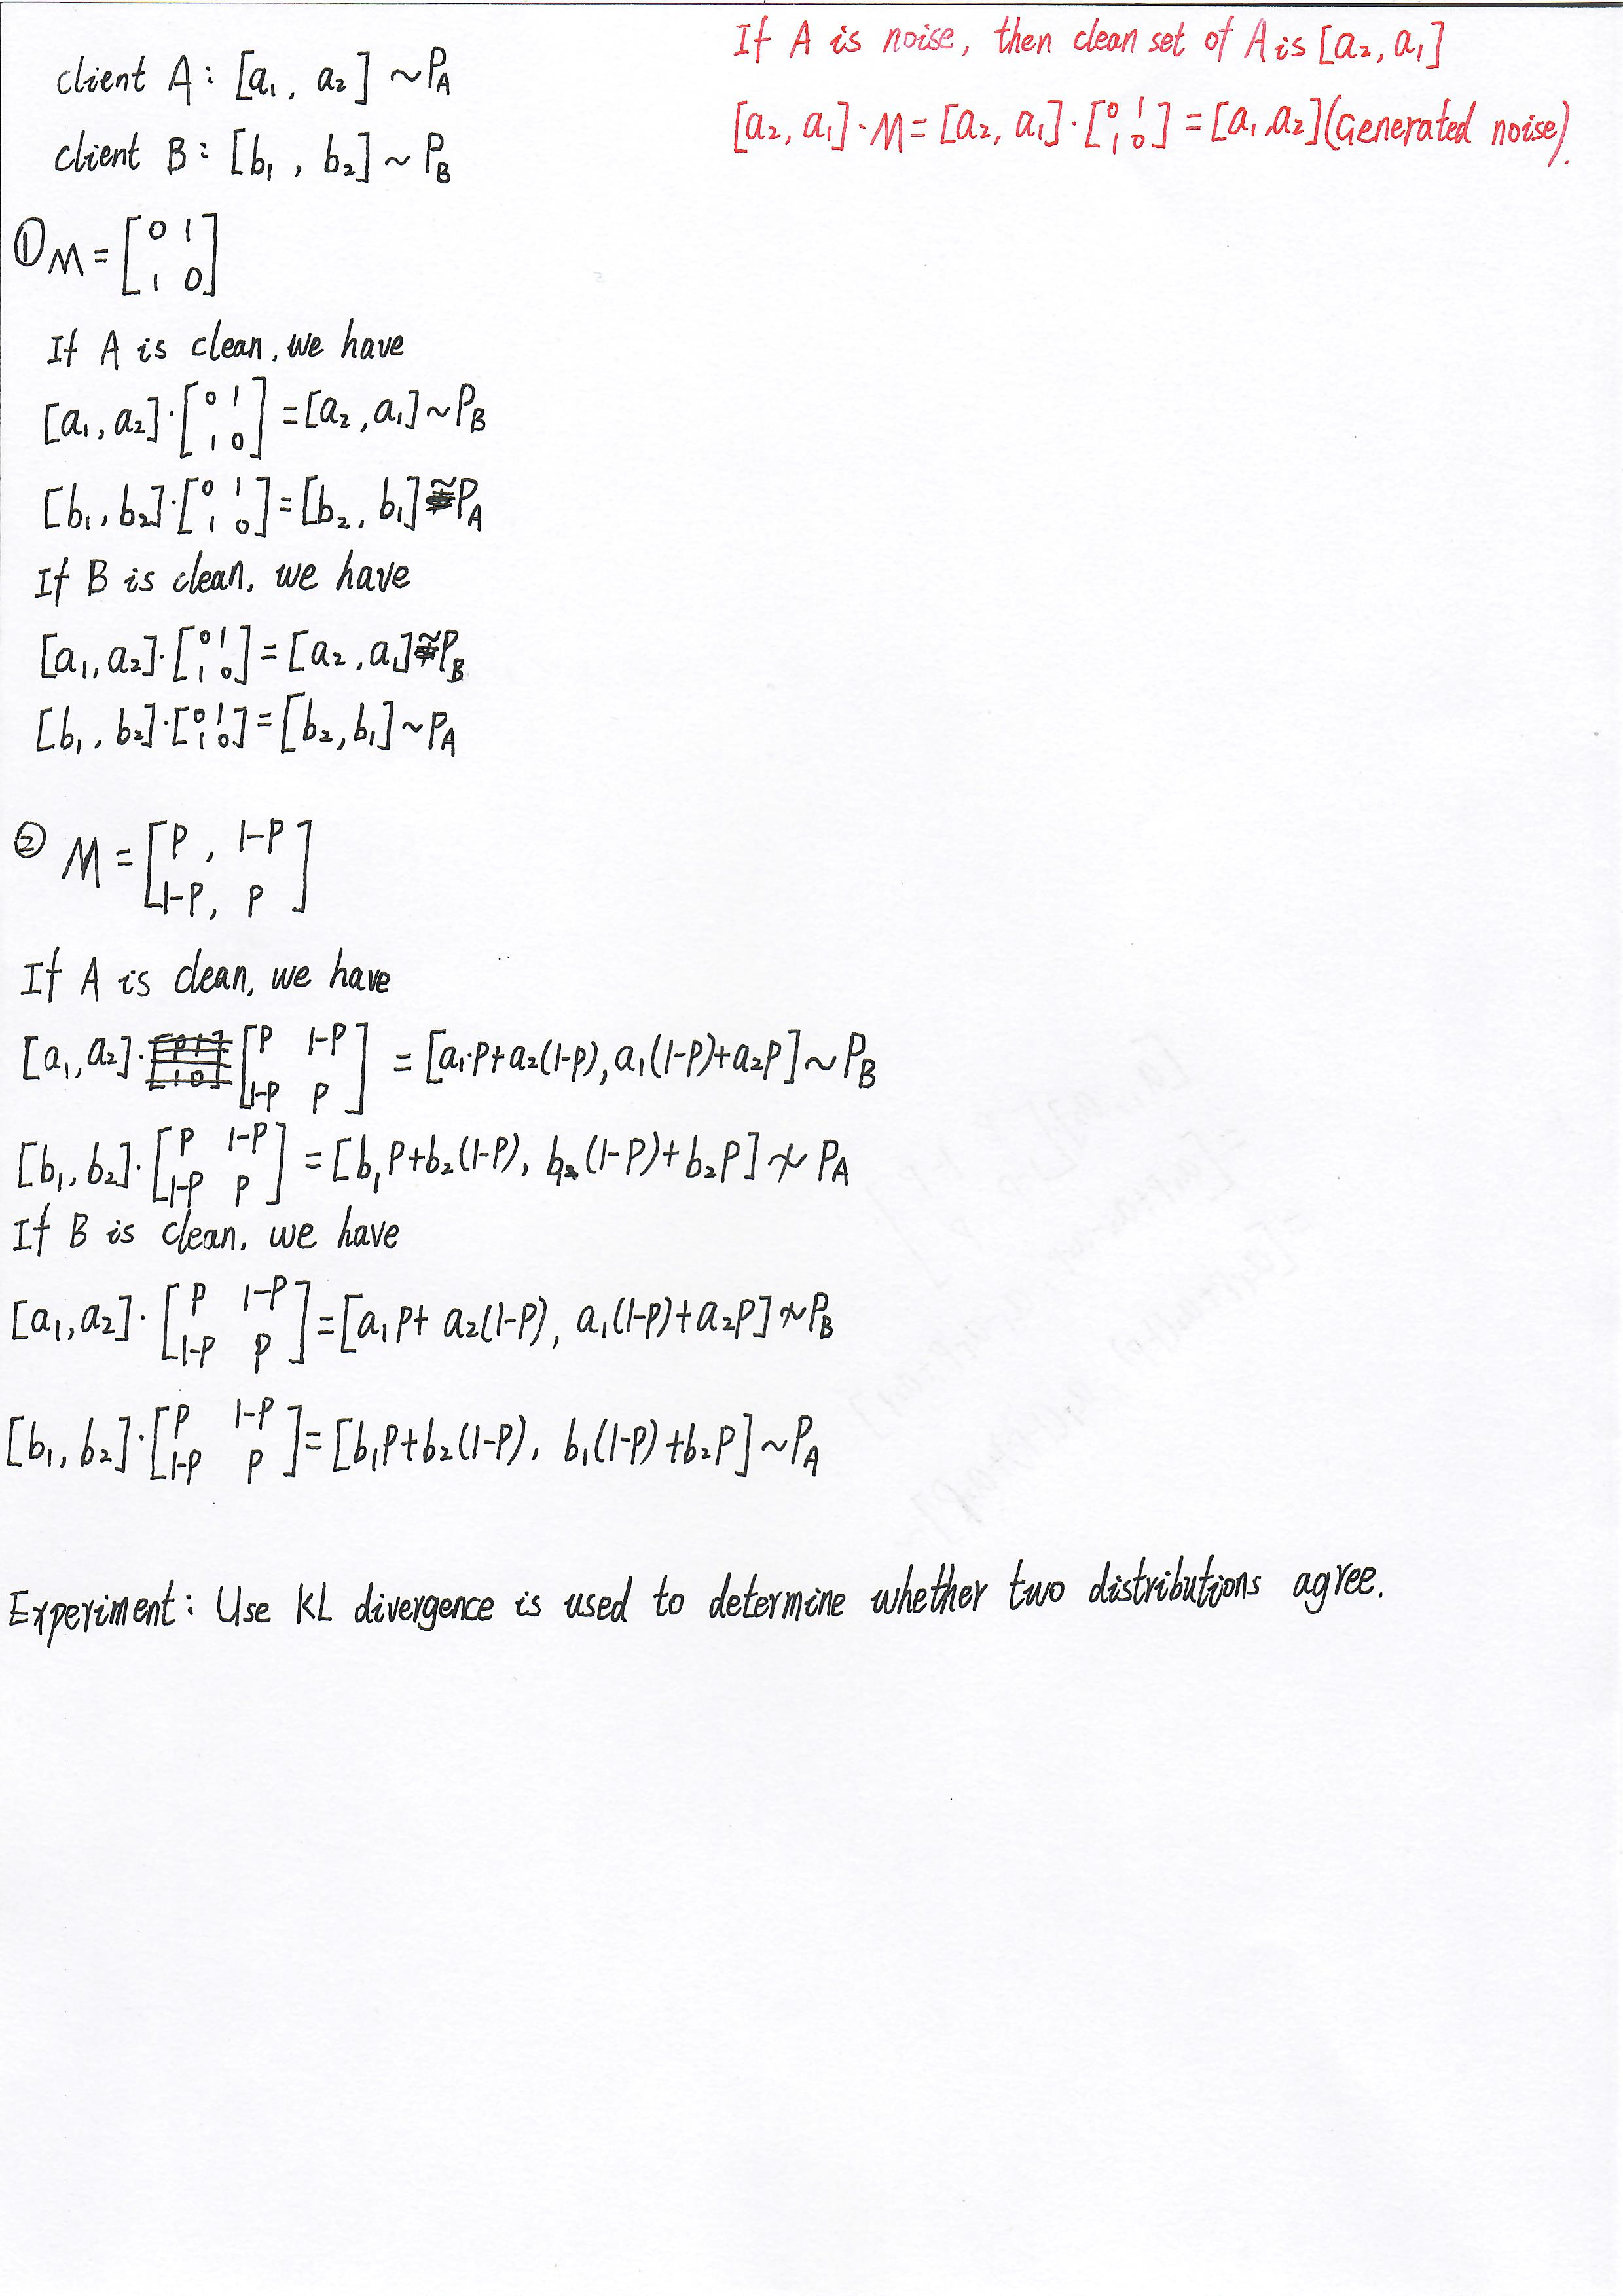 client A: [a₁, a₂] ~ P_A
client B: [b₁, b₂] ~ P_B
If A is noise, then clean set of A is [a₂, a₁]
[a₂, a₁]·M = [a₂, a₁]·[0 1; 1 0] = [a₁, a₂] (Generated noise).
① M = [0 1; 1 0]
If A is clean, we have
[a₁, a₂]·[0 1; 1 0] = [a₂, a₁] ~ P_B
[b₁, b₂]·[0 1; 1 0] = [b₂, b₁] P_A
If B is clean, we have
[a₁, a₂]·[0 1; 1 0] = [a₂, a₁] P_B
[b₁, b₂]·[0 1; 1 0] = [b₂, b₁] ~ P_A
② M = [P, 1-P; 1-P, P]
If A is clean, we have
[a₁, a₂]·[P 1-P; 1-P P] = [a₁·P+a₂(1-P), a₁(1-P)+a₂P] ~ P_B
[b₁, b₂]·[P 1-P; 1-P P] = [b₁P+b₂(1-P), b₂(1-P)+b₂P] ≁ P_A
If B is clean, we have
[a₁, a₂]·[P 1-P; 1-P P] = [a₁P+ a₂(1-P), a₁(1-P)+a₂P] ≁ P_B
[b₁, b₂]·[P 1-P; 1-P P] = [b₁P+b₂(1-P), b₁(1-P)+b₂P] ~ P_A
Experiment: Use KL divergence is used to determine whether two distributions agree.